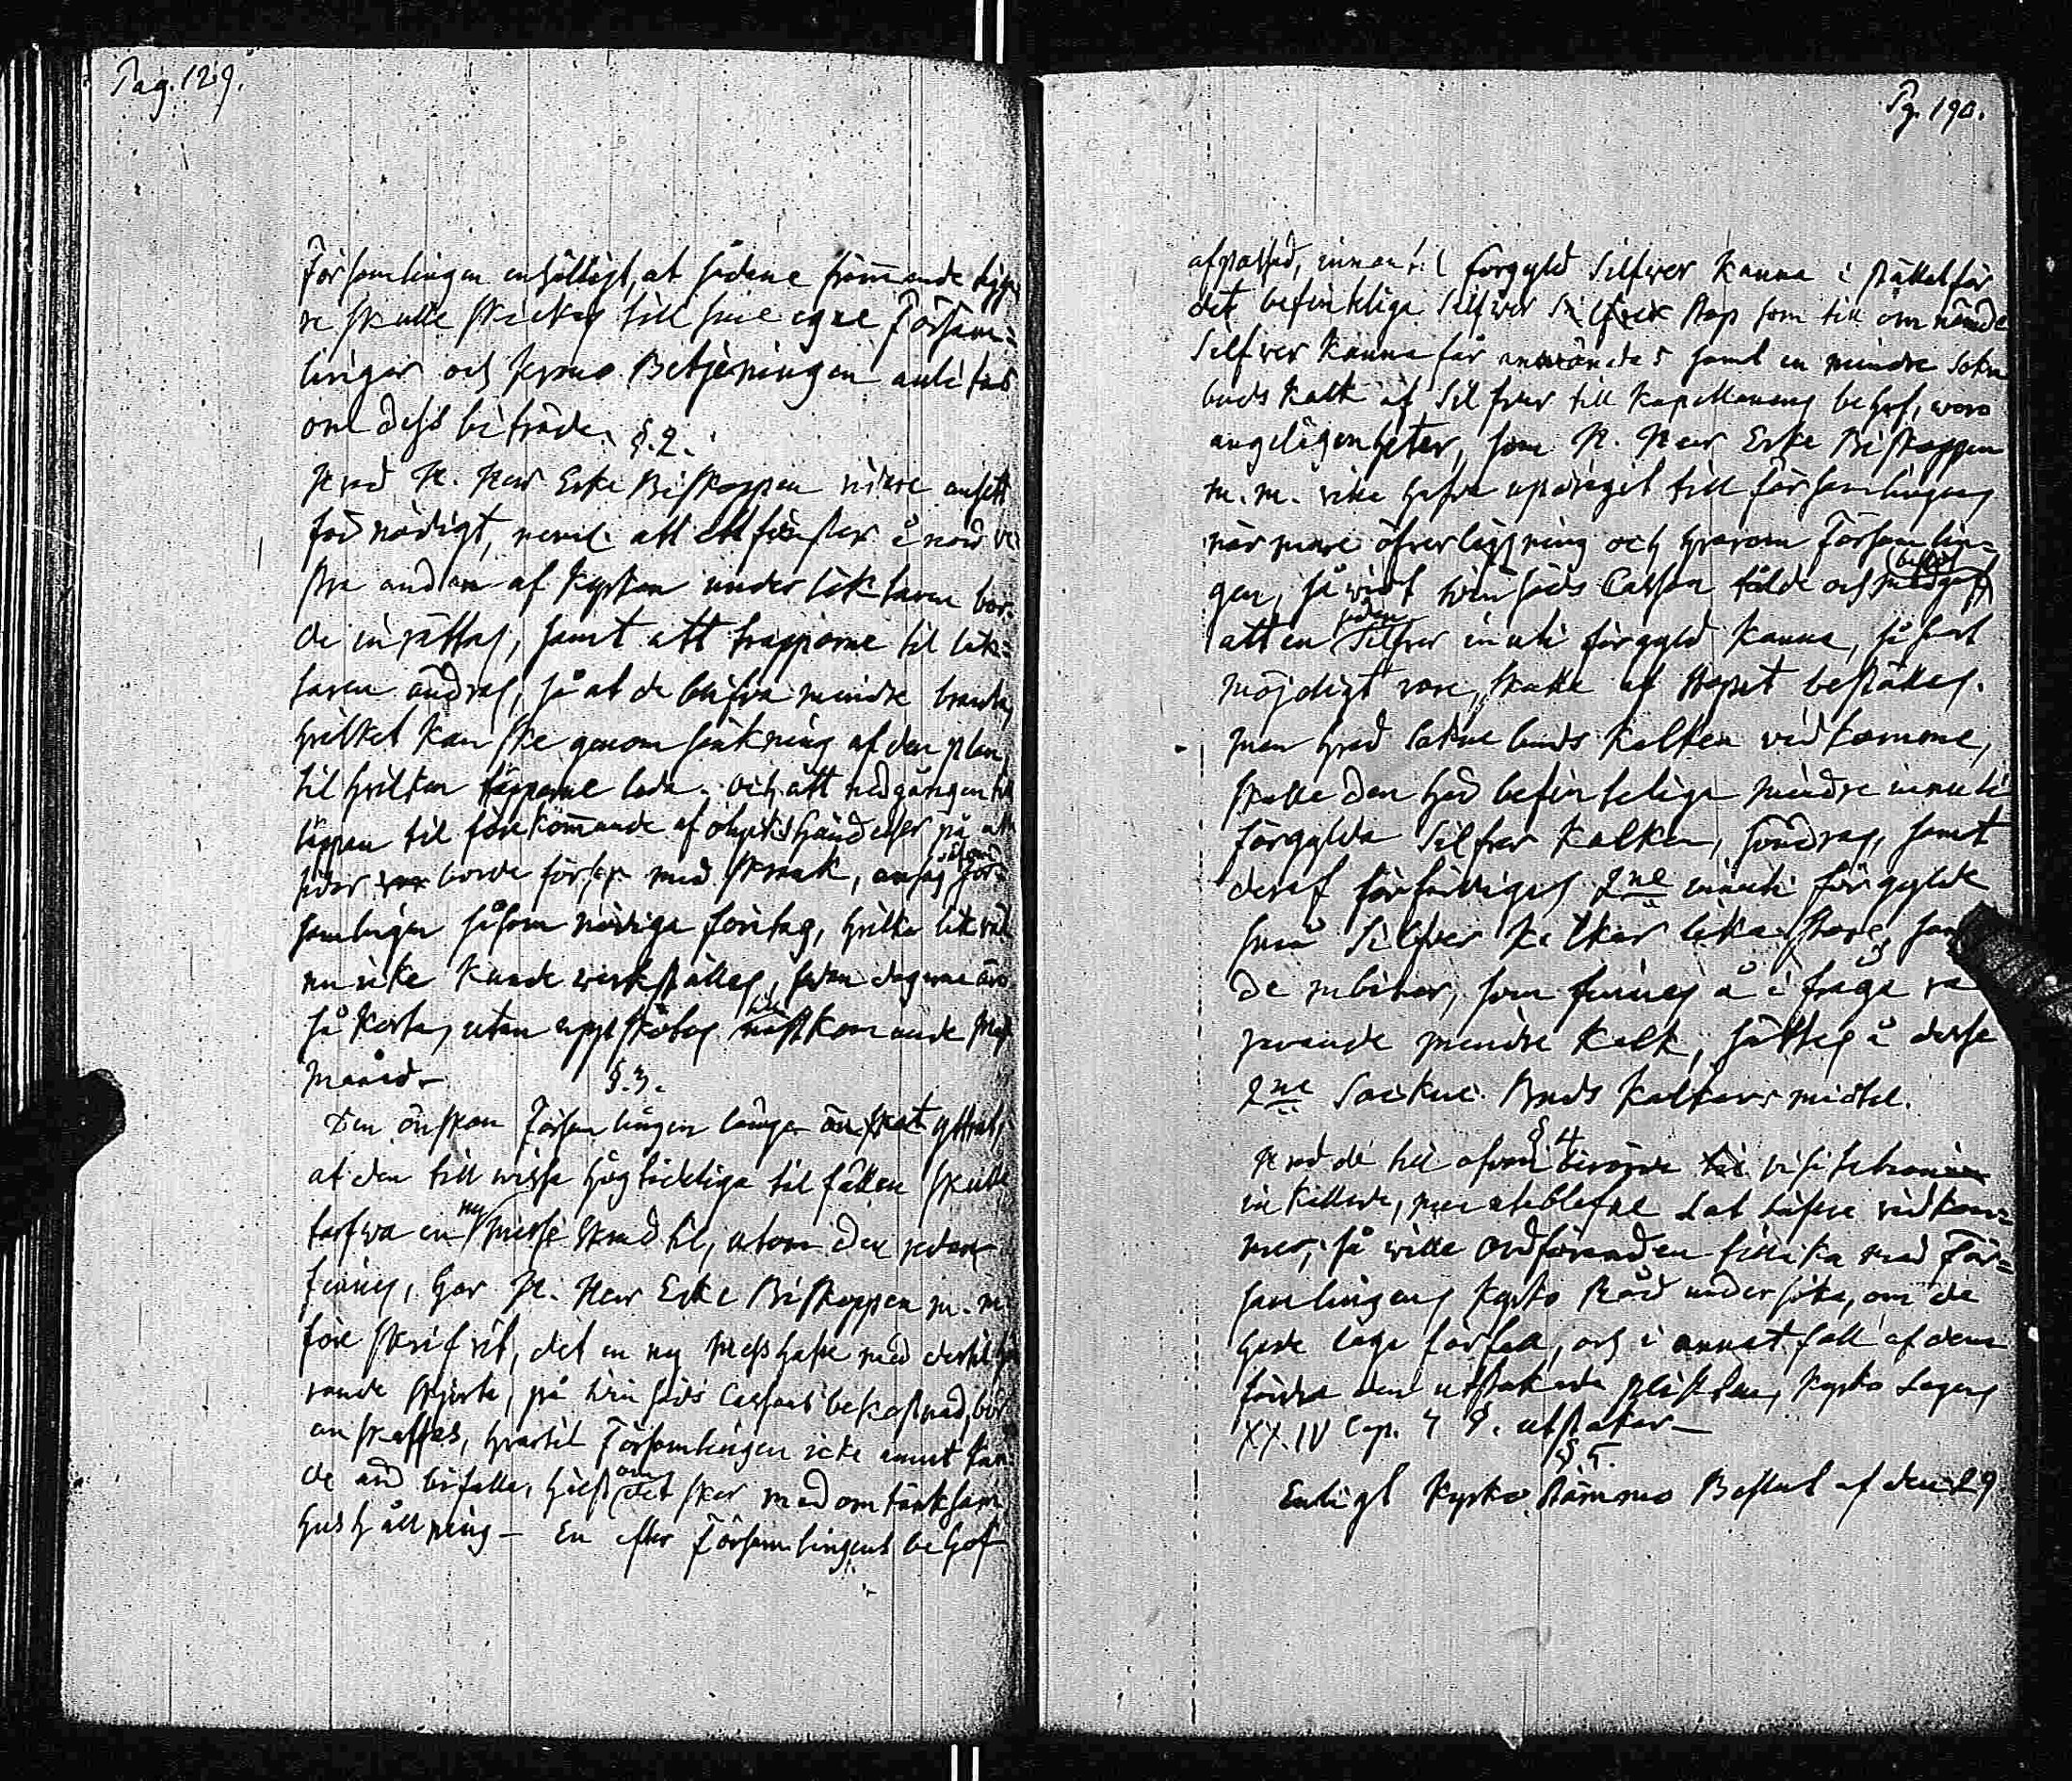 Pag. 129.
Församlingen enhälligt, at sådane främmande tigga
re skulle skickas till sine egne Församl:
lingar och Krono Betjeningen anlitas
om dess biträde. §. 2.
Hvad H. Herr Erke Biskoppen vidare ansett
för nödigt, neml. att ett fönster å norr ve
stra andan af Kyrkan under läktaren bor:
de inrättas, samt att trapporne til läk:
taren ändras, så at de blifva mindre branta,
hvilket kan ske genom sänkning af den plan,
til hvilken trapporne leda. och att nedgången til
täppan til förekommande af olyckshändelser på
sidor borde förses med skrank, ansåg För:
samlingen såsom nödiga företag, hvilka likväl
nu icke kunde verkställas, sedan dagarne äro
så korta, utan uppskötos til nästkommande Maji
Månad. §. 3.
Den önskan Församlingen länge yttrat,
at den till vissa högtideliga tilfällen skulle
tarfwa en ny Messe Skrud til, utom den redan
finnes, har H. Herr Erke Biskoppen m. m.
före skrifvit, det en ny Messhake med dertil hö
rande skjorta, på hin sids Cassans bekostnad, bör
anskaffas, hvartil Församlingen icke annat kun
de änd bifalla, hälst om det sker med omtänksam
hushållning – En efter Församlingens behof
Pg. 190.
afpassad, innan til förgyld Silfwer Kanna i stället för
det befinteliga Silfwer Stop som till om nämde
Silfwer Kanna får användas samt en mindre Sokn
buds Kalk af Silfver till Kapellanens behof, woro
angelägenheter, som H. Herr Erke Biskoppen
m. m. äfven updragit till församlingens
närmare öfverläggning och hvarom Församlin=
gen, så vidt hin sids Cassan tålde och beslöt
att en sådan Silfver inuti förgyld Kanna, så snart
möjeligt vore, skulle af Stopet beställas.
Men hvad Sokne buds Kalken vidkomme,
skulle den här befinteliga mindre innuti
förgylda Silfver Kalken, söndras, samt
deraf förfärdigas 2ne inuti förgylde
små Silfver Kalkar lika stora,
de rubiner, som finnes å i fråga va
rande mindre Kalk, sättes å desse
2ne Sockne Buds Kalkars midtel.
§ 4
Hvad de till ofvan berörde visitation
inkallade, men uteblefne vidkom=
mer, så wille Ordföranden tillika med För=
samlingens Kyrko Råd undersöka, om de
hade laga förfall, och i annat fall af dem
fordra den utstakade plikten, Kyrko Lagens
XXIV Cap. 4 §. utstakar –
§ 5.
Enligt Kyrko Stämmo Beslut af den 29